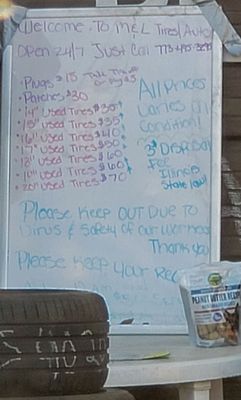 Welcome To M&L Tires/Auto
Open 24/7 Just Call
Plugs $15
Patches $30
14" used Tires $30↑
15" used Tires $35↑
16" used Tires $40↑
17" used Tires $50↑
18" used Tires $60
19" used Tires $60↑
20" used Tires $70
All Prices
Varies on
Condition!
3$ Disposal
Fee
Illinois
State law!
Please Keep OUT Due to
Virus & Safety of our workers
Thank you
Please Keep your
PEANUT BUTTER